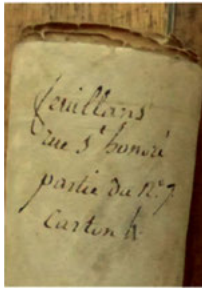 feuillans
rue St honoré
partie du N.° 7
Carton h